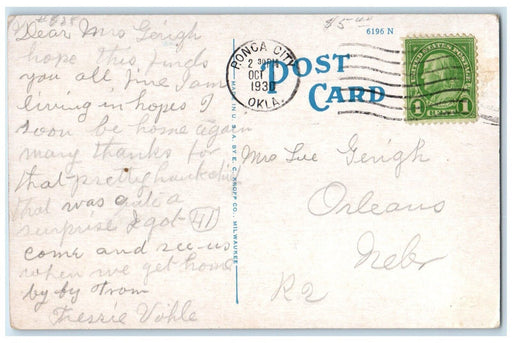 #838
$5.00
6196 N
Dear Mrs Gerigh
hope this finds
you all fine I am
living in hopes I
soon be home again
many thanks for
that pretty
that was quite a
surprise I got 41
come and see us
when we get home
by by from
Tressie Vohle
PONCA CITY
2 30 PM
OCT
1930
OKLA.
POST
CARD
UNITED STATES POSTAGE
1 CENT 1
MADE IN U.S.A. BY E. C. KROPP CO., MILWAUKEE
Mrs Sue Gerigh
Orleans
Nebr
R2